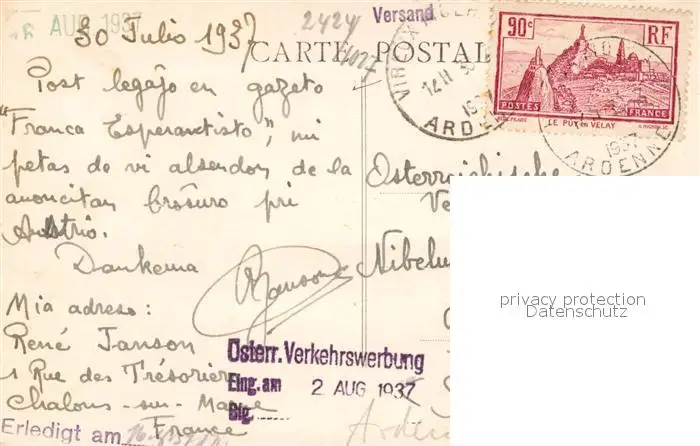 6 AUG 1937
30 Julio 1937
2424
Versand
CARTE POSTALE
90c
RF
POSTES
FRANCE
LE PUY EN VELAY
12H 30
1937
ARDENNE
Post legajo en gazeto
"Franca Esperantisto", mi
petas de vi alsendon de la
anoncitan broŝuro pri
Aŭstrio.
Dankema
Janson
Mia adreso:
René Janson
1 Rue des Trésoriers
Chalons-sur-Marne
France
Österreichische
Ve
Nibelu
privacy protection
Datenschutz
Österr. Verkehrswerbung
Eing. am 2 AUG 1937
Blg.
Erledigt am